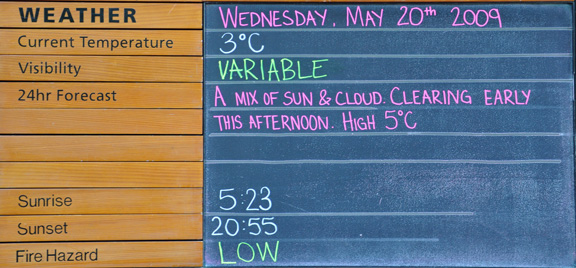 WEATHER WEDNESDAY, MAY 20th 2009
Current Temperature 3°C
Visibility VARIABLE
24hr Forecast A MIX OF SUN & CLOUD. CLEARING EARLY
THIS AFTERNOON. HIGH 5°C
Sunrise 5:23
Sunset 20:55
Fire Hazard LOW